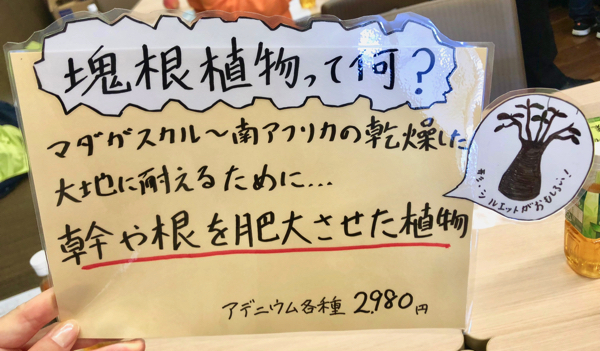 塊根植物って何？
マダガスカル～南アフリカの乾燥した
大地に耐えるために...
幹や根を肥大させた植物
アデニウム各種 2,980円
シルエットがおもしろい！